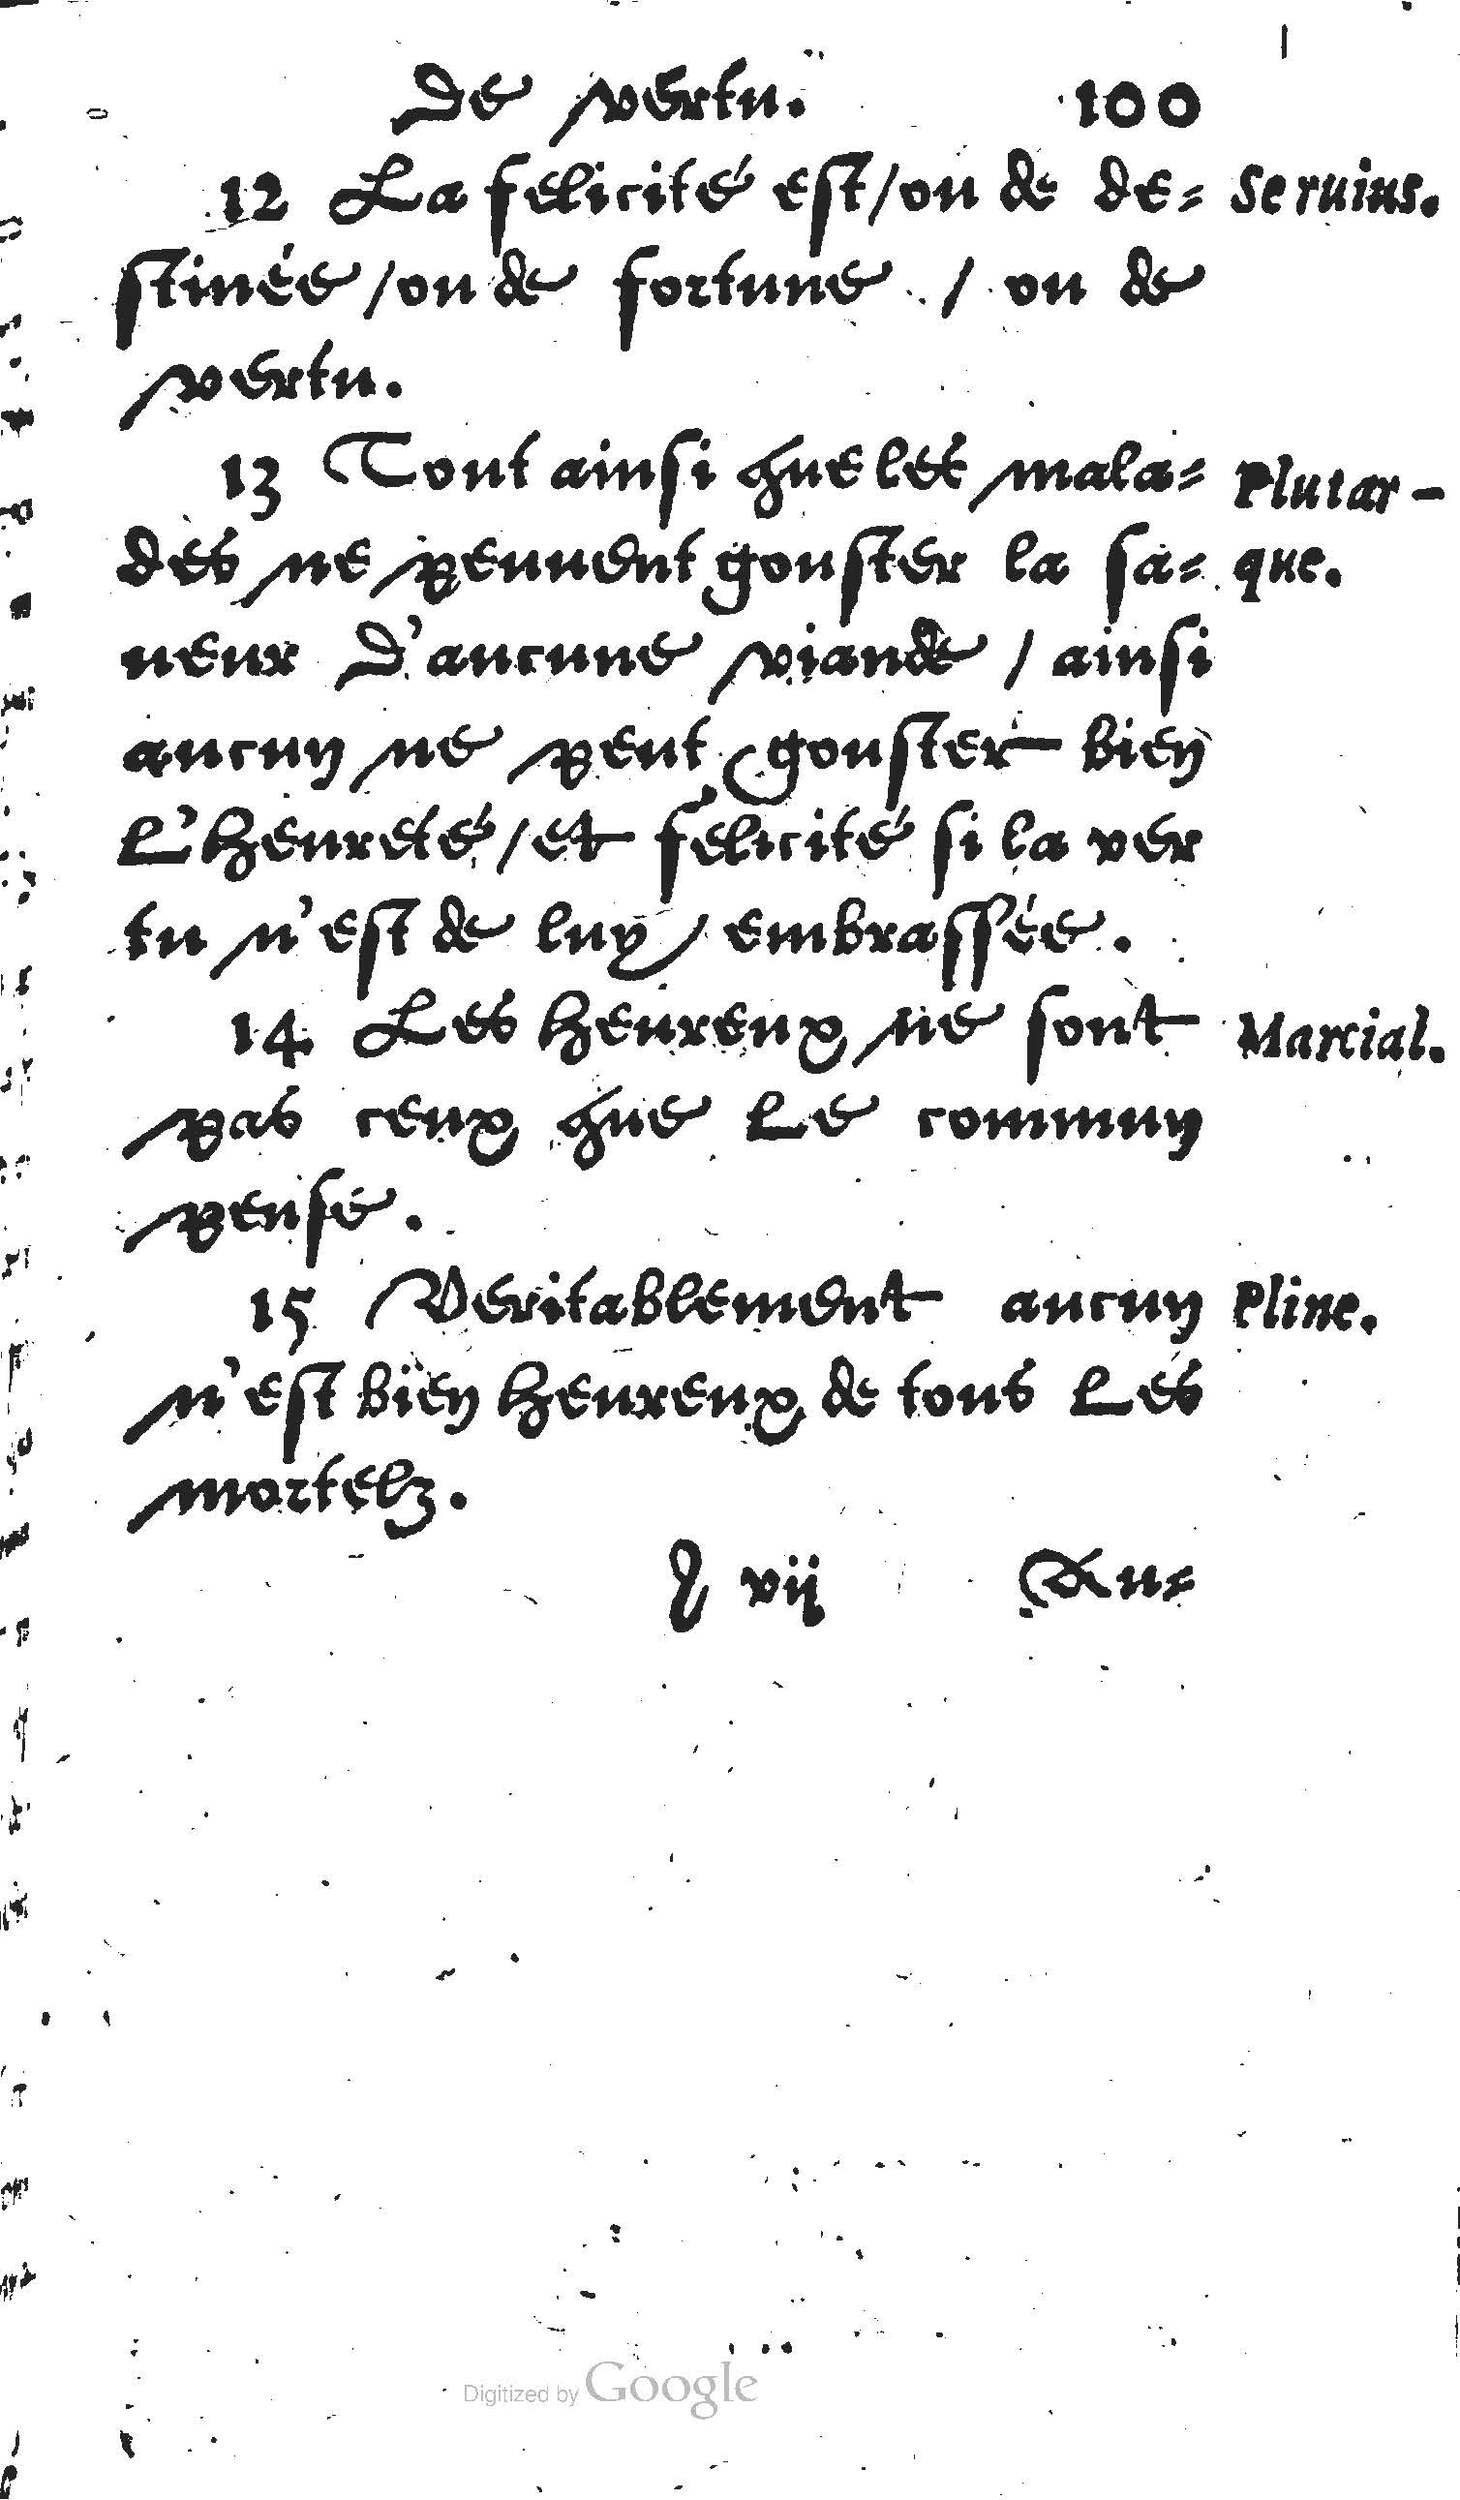 De vertu. 100
12 La felicité est/ou de de= Seruius.
stinée/ou de fortune / ou de
vertu.
13 Tout ainsi que les mala= Plutar-
des ne peuuent gouster la sa= que.
ueur d'aucune viande / ainsi
aucun ne peut gouster bien
l'heureté/et felicité si la ver
tu n'est de luy embrassée.
14 Les heureux ne sont Marcial.
pas ceux que le commun
pense.
15 Veritablement aucun Pline.
n'est bien heureux de tous les
mortelz.
vij Au=
Digitized by Google